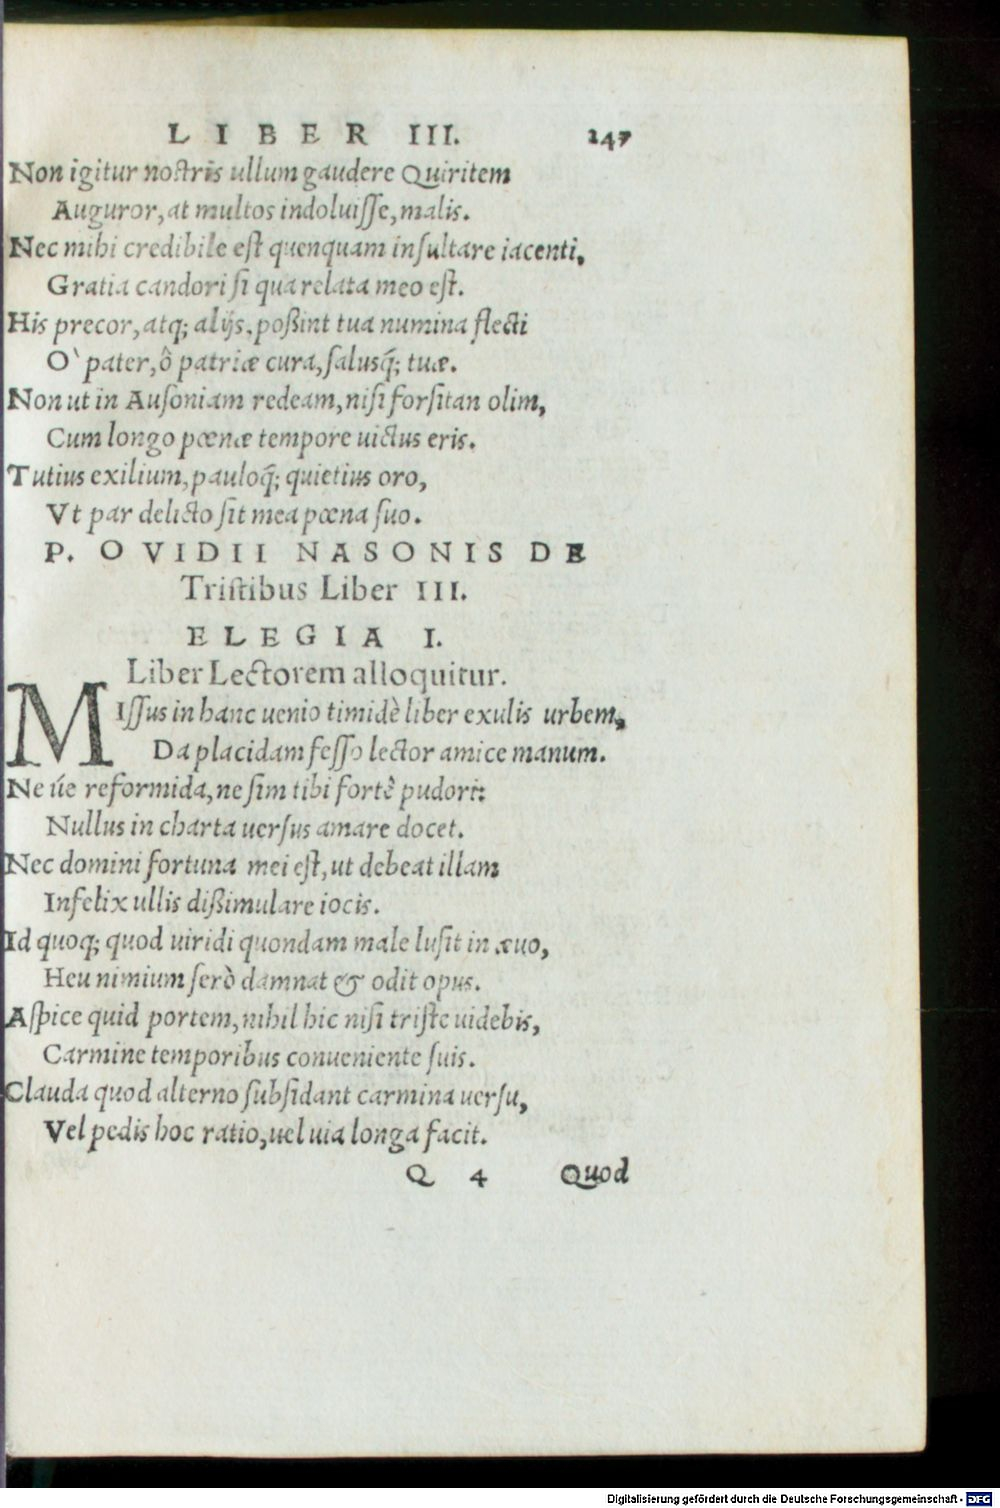 LIBER III. 247
Non igitur nostris ullum gaudere Quiritem
Auguror, at multos indoluisse, malis.
Nec mihi credibile est quenquam insultare iacenti,
Gratia candori si qua relata meo est.
His precor, atq; alijs, poßint tua numina flecti
O` pater, ô patriæ cura, salusq́; tuæ.
Non ut in Ausoniam redeam, nisi forsitan olim,
Cum longo pœnæ tempore uictus eris.
Tutius exilium, pauloq́; quietius oro,
Vt par delicto sit mea pœna suo.
P. OVIDII NASONIS DE
Tristibus Liber III.
ELEGIA I.
Liber Lectorem alloquitur.
MIssus in hanc uenio timidè liber exulis urbem,
Da placidam fesso lector amice manum.
Ne úe reformida, ne sim tibi fortè pudori:
Nullus in charta uersus amare docet.
Nec domini fortuna mei est, ut debeat illam
Infelix ullis dißimulare iocis.
Id quoq; quod uiridi quondam male lusit in æuo,
Heu nimium serò damnat & odit opus.
Aspice quid portem, nihil hic nisi triste uidebis,
Carmine temporibus conueniente suis.
Clauda quod alterno subsidant carmina uersu,
Vel pedis hoc ratio, uel uia longa facit.
Q 4 Quod
Digitalisierung gefördert durch die Deutsche Forschungsgemeinschaft - DFG